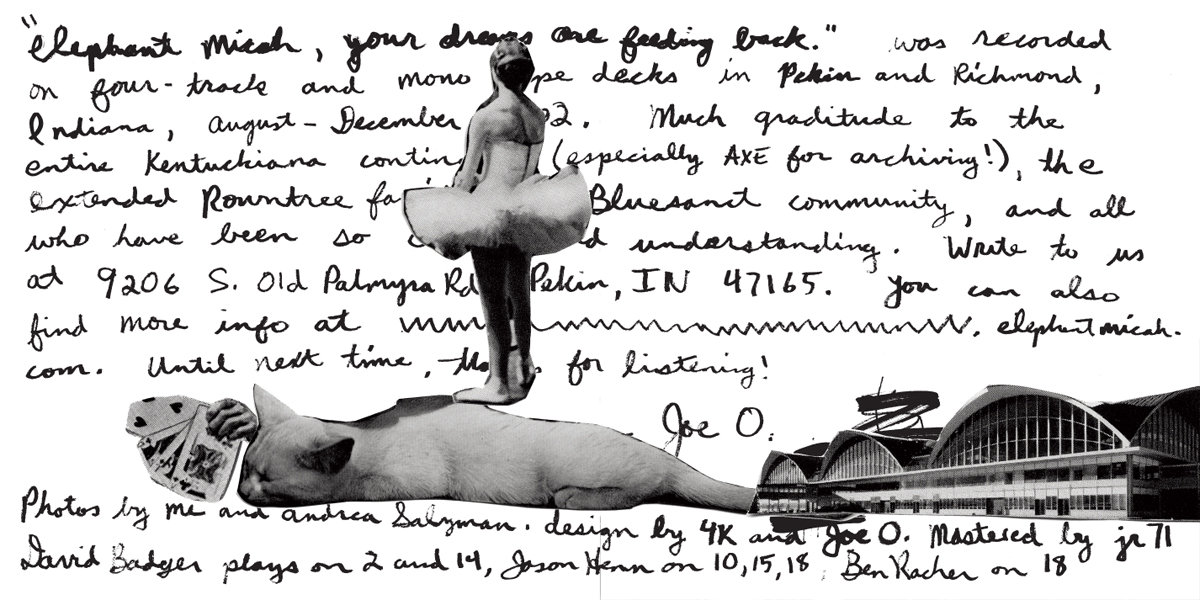 "elephant micah, your dreams are feeding back." was recorded
on four-track and mono pe decks in Pekin and Richmond,
Indiana, august - December 02. Much graditude to the
entire Kentuckiana contin (especially AXE for archiving!), the
extended Rowntree fa Bluesanct community, and all
who have been so d understanding. Write to us
at 9206 S. Old Palmyra Rd Pekin, IN 47165. You can also
find more info at elephantmicah.
com. Until next time, tha s for listening!
Joe O.
Photos by me and andrea Salzman. design by 4K and Joe O. Mastered by jr71
David Badger plays on 2 and 14, Jason Henn on 10, 15, 18 Ben Racher on 18